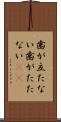 歯が立たな
い歯がたた
ない